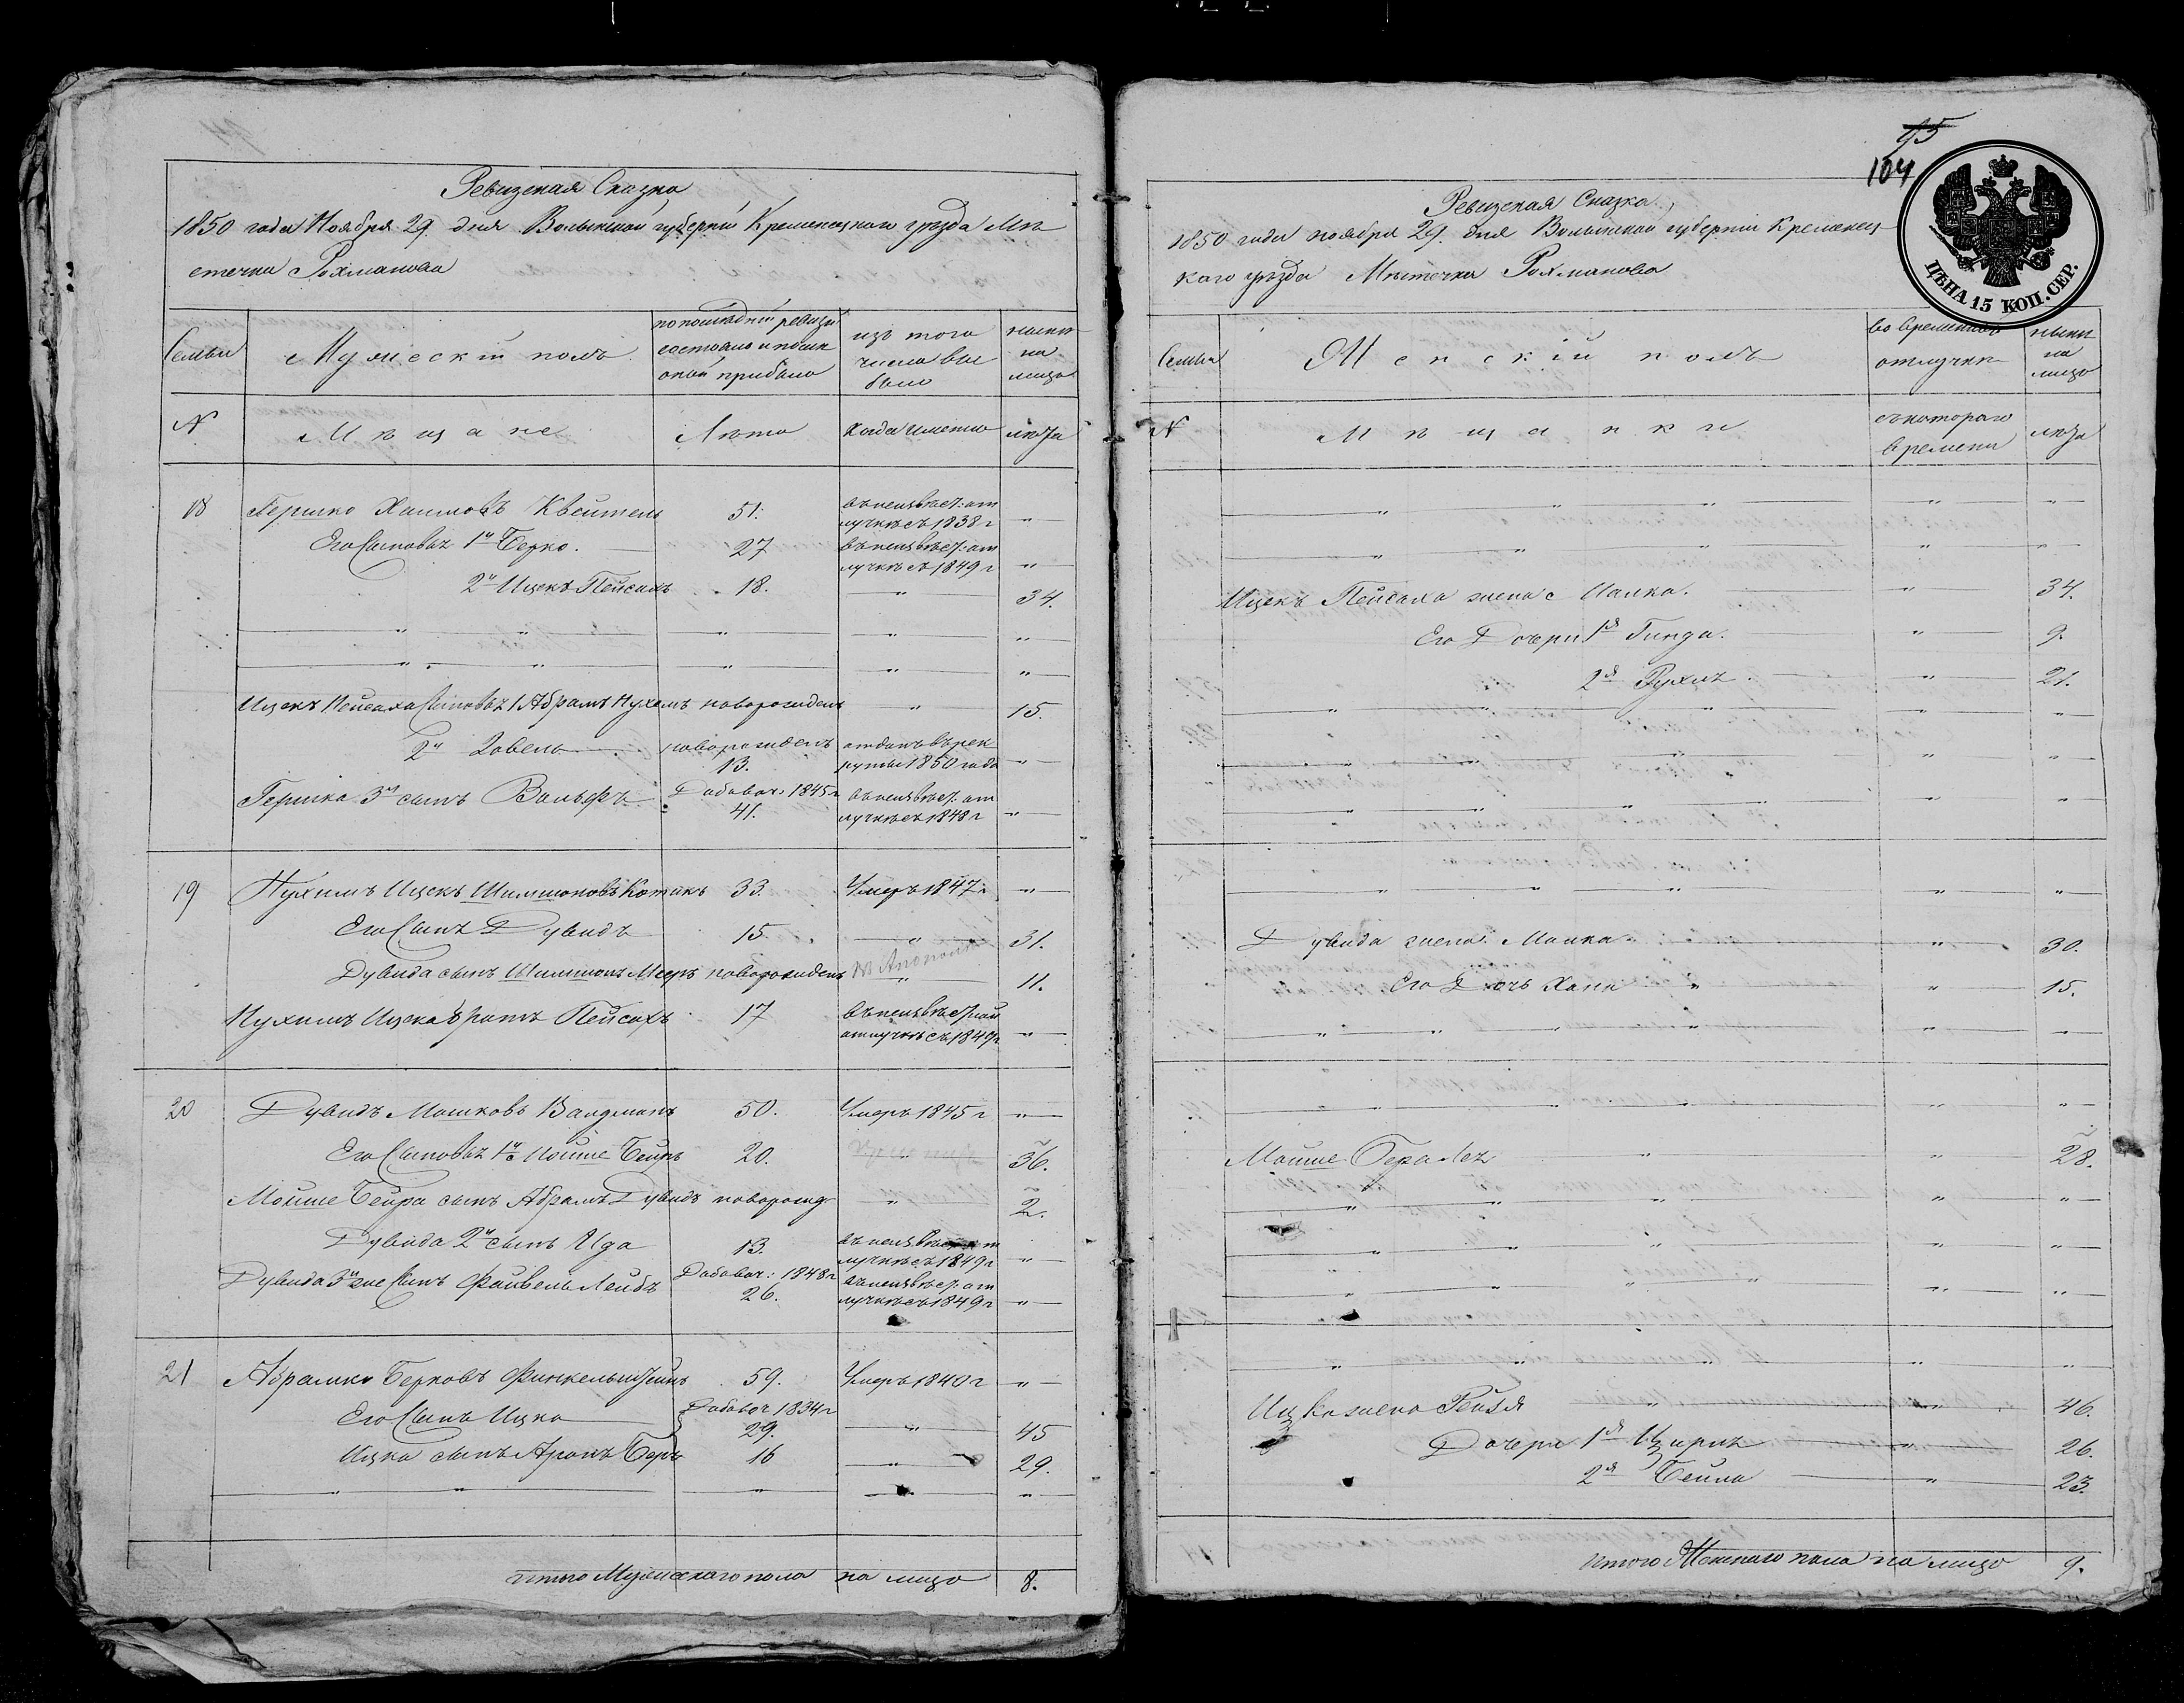 Ревизская Сказка
1850 года Ноября 29 дня Волынской губернии Кременецкаго уезда Мѣ
стечка Рохманова
Семьи
Мужескій полъ
по последней ревизіи
состояло и после
оной прибыло
изъ того
числа вы
было
нынѣ
на
лицо
№
Мѣщане
Лѣта
когда именно
лѣта
18
Гершко Хаимовъ Квейтель
51.
въ неизвѣст: от
лучкѣ съ 1838 г
"
Его Сыновья 1й Берко.
27
въ неизвѣст: от
лучкѣ съ 1849 г
"
2й Ицекъ Пейсахъ
18.
"
34.
" " " " "
" " " " "
Ицекъ Пейсаха Сыновья 1 Абрамъ Нухимъ новорожденъ
"
15.
2й Зовель
новорожденъ
13.
отданъ въ рек
руты 1850 года
"
Гершка 3й сынъ Вольфъ
Добавоч: 1845 г
41.
въ неизвѣст: от
лучкѣ съ 1848 г
"
19
Нухимъ Ицекъ Шимшоновъ Котикъ
33.
Умеръ 1847 г
"
Его Сынъ Дувидъ
15.
"
31.
Дувида сынъ Шимшонъ Мееръ новорожденъ
"
11.
Нухимъ Ицека братъ Пейсахъ
17
въ неизвѣстной
отлучкѣ съ 1849 г
"
20
Дувидъ Мошковъ Вайдманъ
50.
Умеръ 1845 г
"
Его Сыновья 1й Мойше Беиръ
20.
"
36.
Мойше Беира сынъ Абрамъ Дувидъ новорожд
"
2.
Дувида 2й сынъ Ида
13.
въ неизвѣст: от
лучкѣ съ 1849 г
"
Дувида 3й же Сынъ Файвель Лейбъ
Добавоч: 1848 г
26.
въ неизвѣст: от
лучкѣ съ 1849 г
"
21
Абрамко Берковъ Финкельштейнъ
59.
Умеръ 1840 г
"
Его Сынъ Ицко
Добавоч 1834 г
29.
"
45
Ицка сынъ Аронъ Беръ
16
"
29.
" " " " "
Итого Мужескаго пола на лицо
8.
95
104
ЦѢНА 15 КОП. СЕР.
Ревизская Сказка
1850 года ноября 29. дня Волынской губерніи Кременец
каго уѣзда Мѣстечка Рохманова
Семьи
Женскій полъ
во временной
отлучкѣ
нынѣ
на
лицо
№
Мѣщанки
съ котораго
времени
лѣта
" " " " "
" " " " "
Ицекъ Пейсаха жена Малка.
"
34.
Его Дочери 1я Гинда.
"
9.
2я Рухля.
"
21.
" " " " "
" " " " "
" " " " "
" " " " "
Дувида жена Малка
"
30.
Его Дочь Хана
"
15.
" " " " "
" " " " "
Мойше
"
28.
" " " " "
" " " " "
" " " " "
" " " " "
Ицка жена Рейзя
"
46.
Дочери 1я Ципра
"
26.
2я Бейла
"
23.
Итого Женскаго пола на лицо
9.